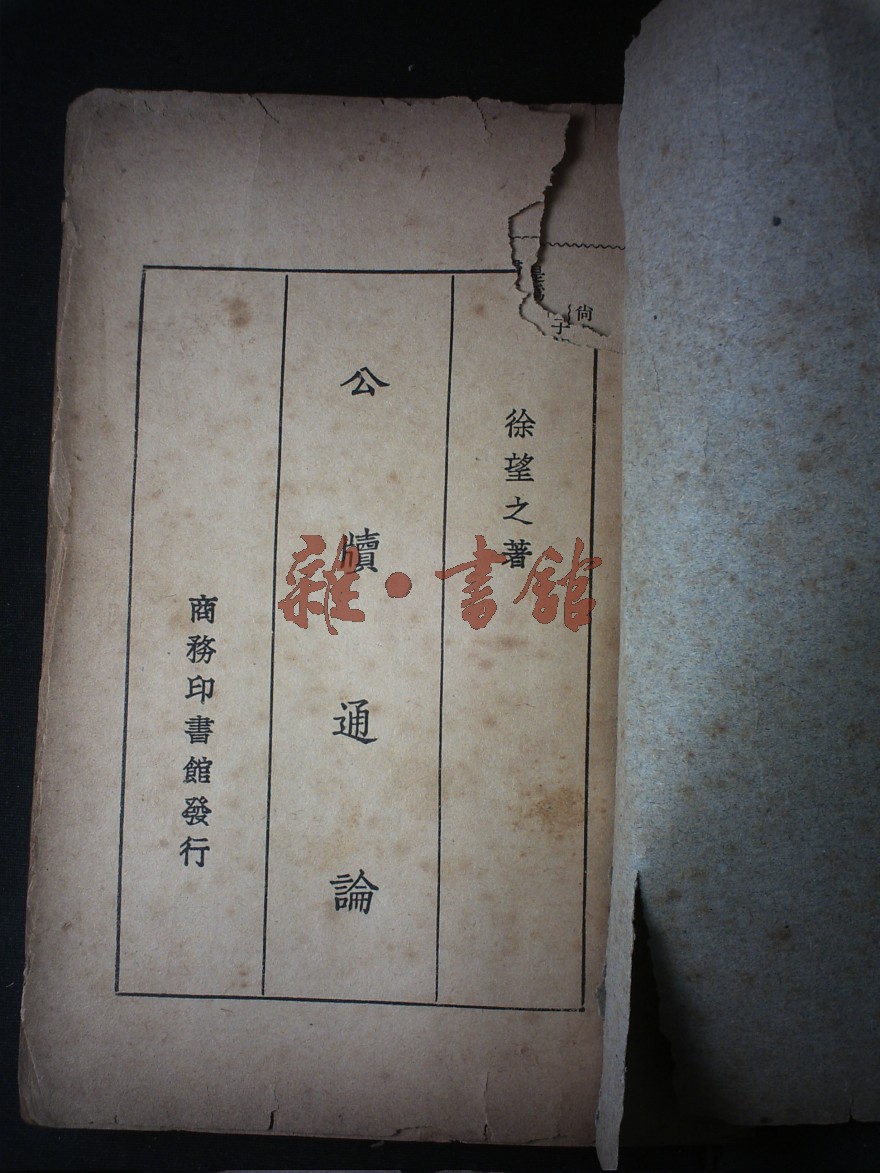 徐望之著
公牘通論
商務印書館發行
雜·書館
尙
子